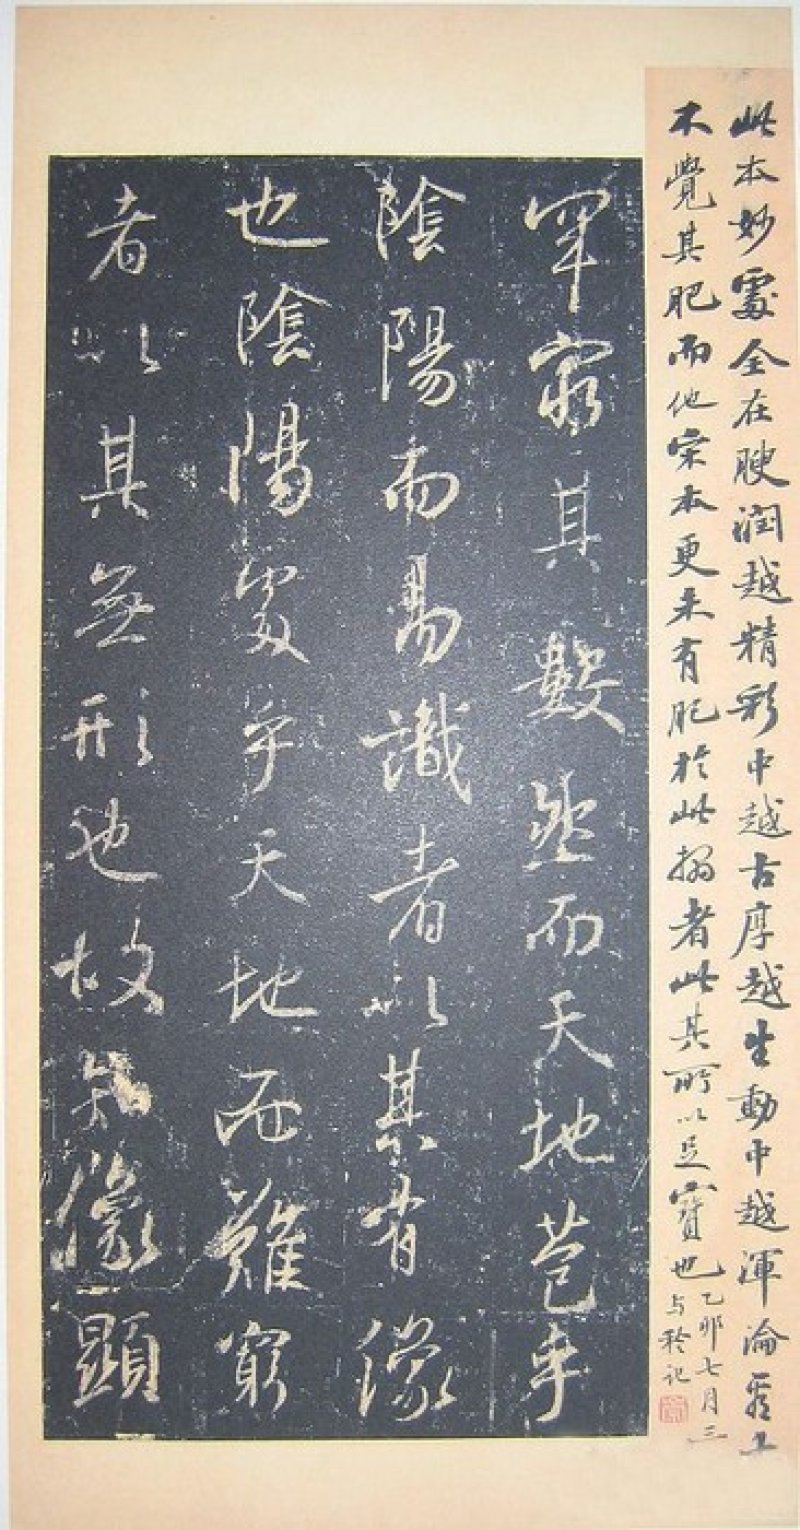 此本妙處全在腴潤越精彩中越古厚越生動中越渾淪
不覺其肥而他宋本更未有肥於此搨者此其所以足寶也
乙卯七月三
与舲記
罕窮其數然而天地苞乎
陰陽而易識者以其有像
也陰陽處乎天地而難窮
者以其無形也故知像顯